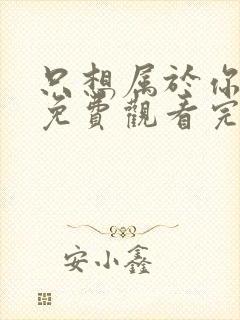 只想属於你
免費觀看完
安小鑫